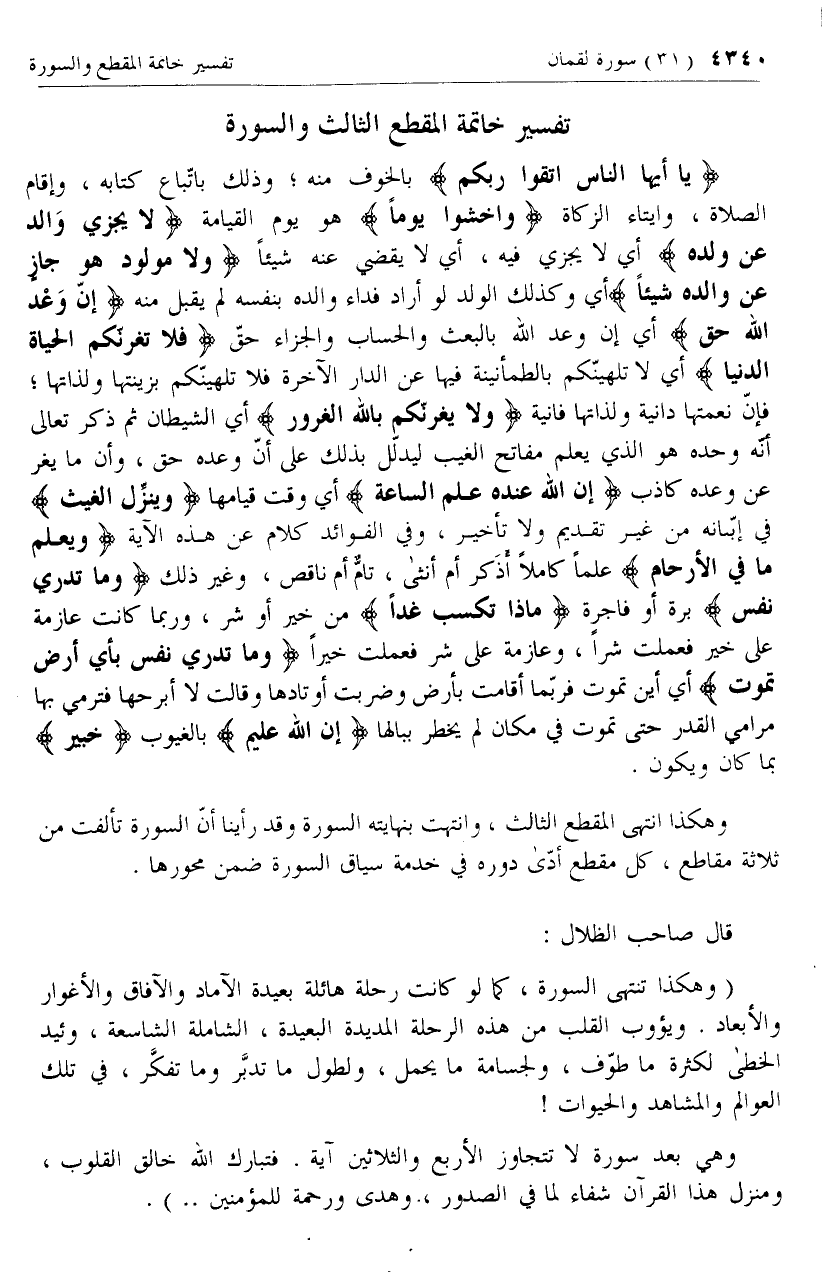 ٤٣٤٠ ( ٣١ ) سورة لقمان تفسير خاتمة المقطع والسورة
تفسير خاتمة المقطع الثالث والسورة
﴿ يا أيها الناس اتقوا ربكم ﴾ بالخوف منه ؛ وذلك باتّباع كتابه ، وإقام
الصلاة ، وايتاء الزكاة ﴿ واخشوا يوماً ﴾ هو يوم القيامة ﴿ لا يجزي وَالد
عن ولده ﴾ أي لا يجزي فيه ، أي لا يقضي عنه شيئاً ﴿ ولا مولود هو جازٍ
عن والده شيئاً ﴾أي وكذلك الولد لو أراد فداء والده بنفسه لم يقبل منه ﴿ إنّ وَعْد
الله حق ﴾ أي إن وعد الله بالبعث والحساب والجزاء حقّ ﴿ فلا تغرنّكم الحياة
الدنيا ﴾ أي لا تلهينّكم بالطمأنينة فيها عن الدار الآخرة فلا تلهينّكم بزينتها ولذاتها ؛
فإنّ نعمتها دانية ولذاتها فانية ﴿ ولا يغرنّكم بالله الغرور ﴾ أي الشيطان ثم ذكر تعالى
أنّه وحده هو الذي يعلم مفاتح الغيب ليدلّل بذلك على أنّ وعده حق ، وأن ما يغر
عن وعده كاذب ﴿ إن الله عنده علم الساعة ﴾ أي وقت قيامها ﴿ وينزِّل الغيث ﴾
في إبّانه من غير تقديم ولا تأخير ، وفي الفوائد كلام عن هذه الآية ﴿ ويعلم
ما في الأرحام ﴾ علماً كاملاً أَذَكر أم أنثى ، تامٌّ أم ناقص ، وغير ذلك ﴿ وما تدري
نفس ﴾ برة أو فاجرة ﴿ ماذا تكسب غداً ﴾ من خير أو شر ، وربما كانت عازمة
على خير فعملت شراً ، وعازمة على شر فعملت خيراً ﴿ وما تدري نفس بأي أرض
تموت ﴾ أي أين تموت فربّما أقامت بأرض وضربت أوتادها وقالت لا أبرحها فترمي بها
مرامي القدر حتى تموت في مكان لم يخطر ببالها ﴿ إن الله عليم ﴾ بالغيوب ﴿ خبير ﴾
بما كان ويكون .
وهكذا انتهى المقطع الثالث ، وانتهت بنهايته السورة وقد رأينا أنّ السورة تألفت من
ثلاثة مقاطع ، كل مقطع أدّىٰ دوره في خدمة سياق السورة ضمن محورها .
قال صاحب الظلال :
( وهكذا تنتهى السورة ، كما لو كانت رحلة هائلة بعيدة الآماد والآفاق والأغوار
والأبعاد . ويؤوب القلب من هذه الرحلة المديدة البعيدة ، الشاملة الشاسعة ، وئيد
الخطىٰ لكثرة ما طوّف ، ولجسامة ما يحمل ، ولطول ما تدبَّر وما تفكَّر ، في تلك
العوالم والمشاهد والحيوات !
وهي بعد سورة لا تتجاوز الأربع والثلاثين آية . فتبارك الله خالق القلوب ،
ومنزل هذا القرآن شفاء لما في الصدور ، وهدى ورحمة للمؤمنين .. ) .